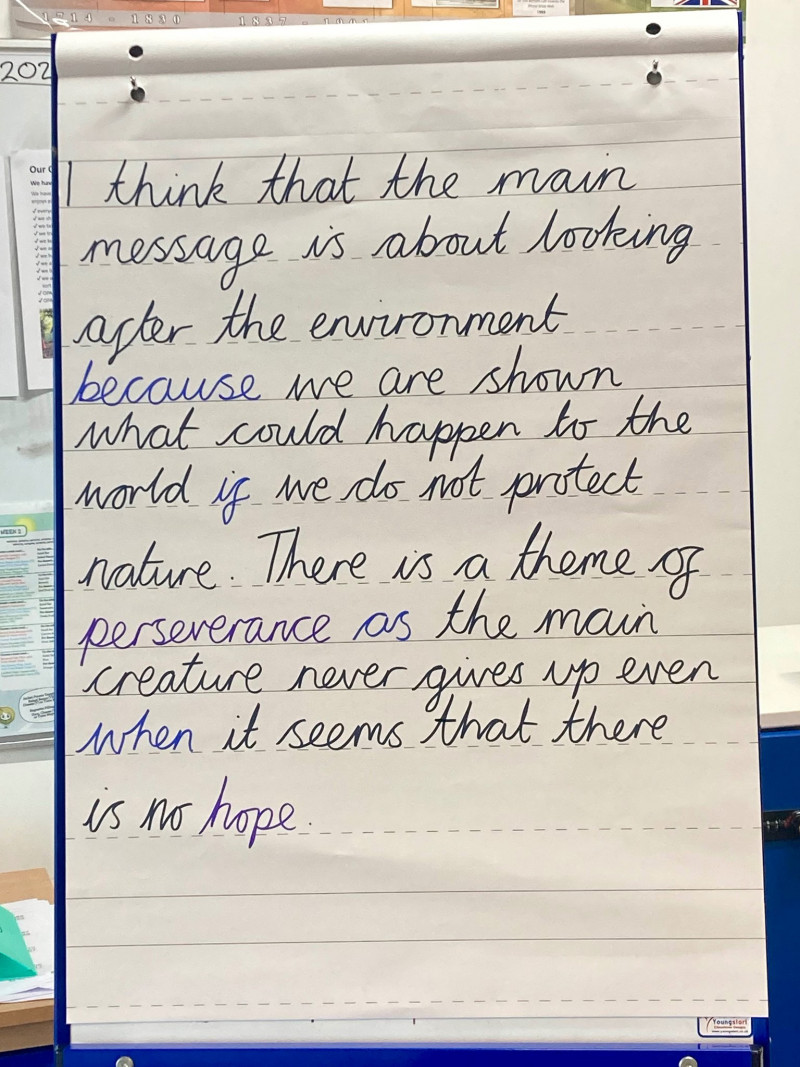 1714 - 1830
1837 - 1901
202
Our
We hav
WEEK 2
I think that the main
message is about looking
after the environment
because we are shown
what could happen to the
world if we do not protect
nature. There is a theme of
perseverance as the main
creature never gives up even
when it seems that there
is no hope.
Youngstart